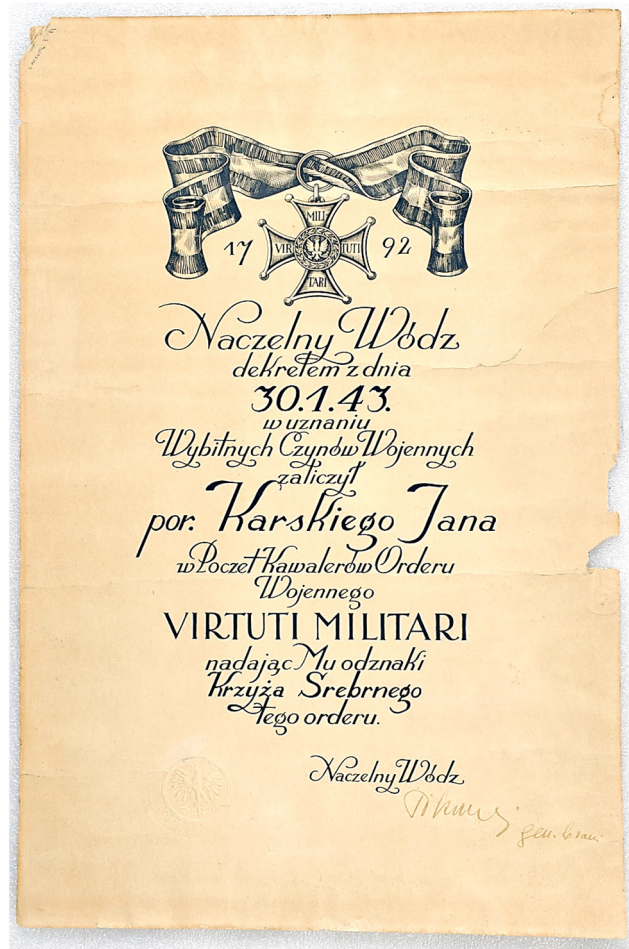 MILI
VIR TUTI
TARI
17 92
Naczelny Wódz
dekretem z dnia
30.1.43.
w uznaniu
Wybitnych Czynów Wojennych
zaliczył
por. Karskiego Jana
w Poczet Kawalerów Orderu
Wojennego
VIRTUTI MILITARI
nadając Mu odznaki
Krzyża Srebrnego
tego orderu.
Naczelny Wódz
gen. broni